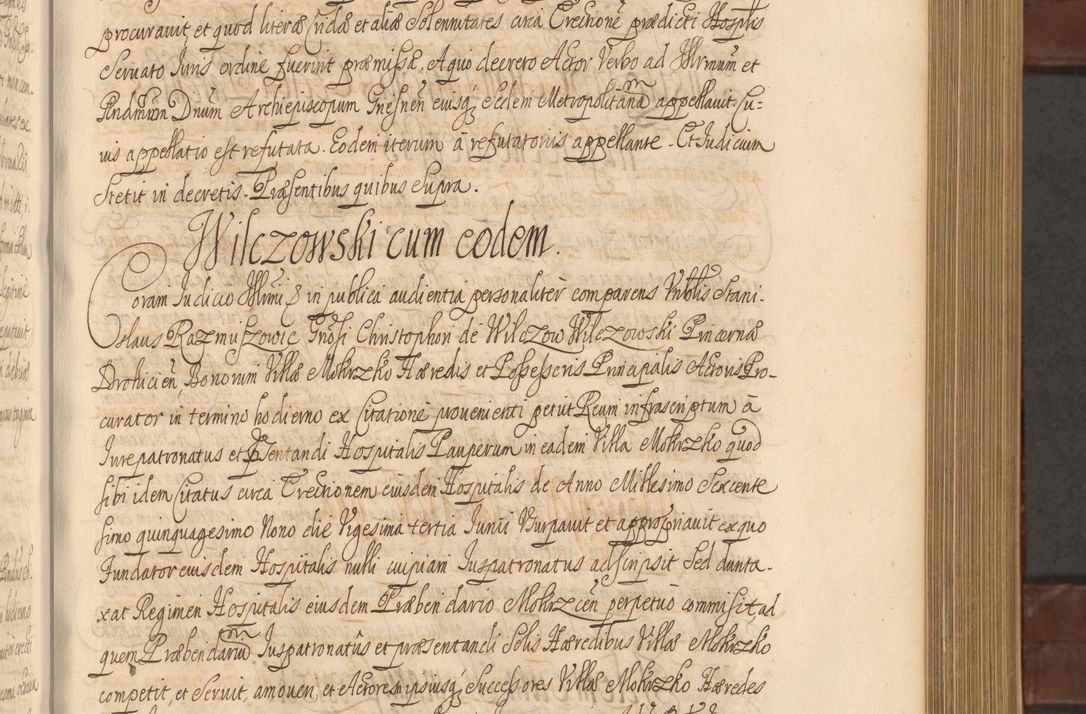 procuravit, et quod literæ fundæ et aliæ Solemnitates circa Erectione prædicti Hosplis
servato Iuris ordine fuerint præmissæ. A quo decreto Actor Verbo ad Illrmum et
Rndmum Dnum Archiepiscopum Gnesnen eiusq3 Sedem Metropolitanam appellavit. Cu-
ius appellatio est refutata. Eodem iterum à refutatoriis appellante. Et Iudicium
Stetit in decretis. Præsentibus quibus supra.
Wilczowski cum eodem.
Coram Iudicio Illrmi & in publica audientia personaliter comparens Nbtlis Stani-
slaus Razmuszowic Gnosi Christophori de Wilczow Wilczowski Pincernæ
Drohicien Bonorum Villæ Mokrzko Hæredis et Possessoris Principalis Actoris Pro-
curator in termino hodierno ex Citatione provenienti petiit Reum infrascriptum à
Iurepatronatus et Psentandi Hospitalis Pauperum in eadem Villa Mokrzko quod
sibi idem Citatus circa Erectionem eiusdem Hospitalis de Anno Millesimo Sexcente
simo quinquagesimo Nono die Vigesima tertia Iunii Vsurpavit et appropriavit ex quo
Fundator eiusdem Hospitalis nulli cuipiam Iuspatronatus adscripsit sed dunta-
xat Regimen Hospitalis eiusdem Præbendario Mokrzcen perpetuo commisit, ad
quem Præbendarium Iuspatronatûs et præsentandi Solis Hæredibus Villæ Mokrzko
competit, et servit, amoveri, et Actorem ipsiusq3 Successores Villæ Mokrzko Hæredes